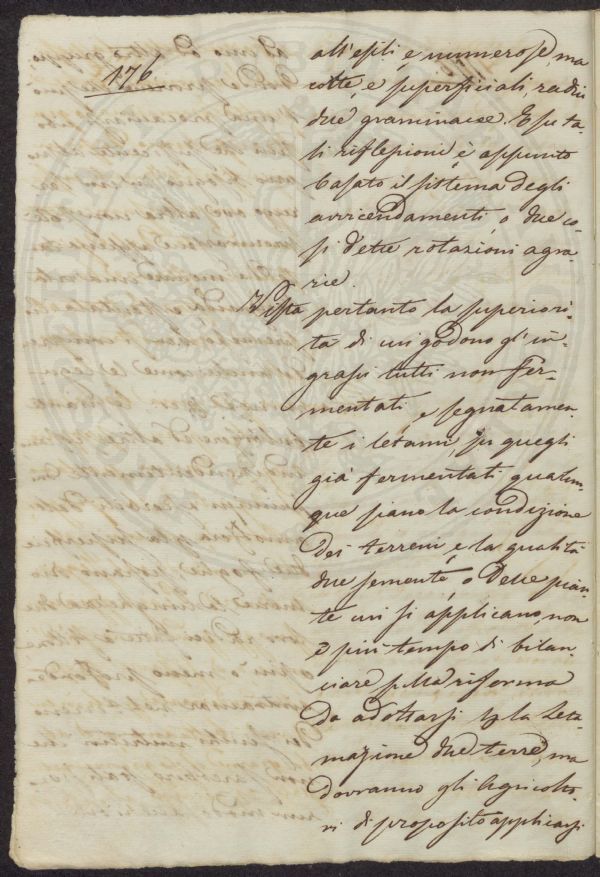 176.
all'esili e numerose ma
corte, e superficiali radici
due graminacee. E su ta-
li riflessioni è appunto
basato il sistema degli
avvicendamenti, o due co-
sì dette rotazioni agra-
rie.
Vista pertanto la superiori-
ta di cui godono gl' in-
grassi tutti non fer-
mentati, e segnatamen-
te i letami, su quegli
già fermentati qualun-
que siano la condizione
dei terreni, e la qualità
due sementi, o delle pian-
te cui si applicano, non
è più tempo di bilan-
ciare sulla riforma
da adottarsi la leta-
mazione due terre, ma
dovranno gli Agricolto-
ri di proposito applicarsi